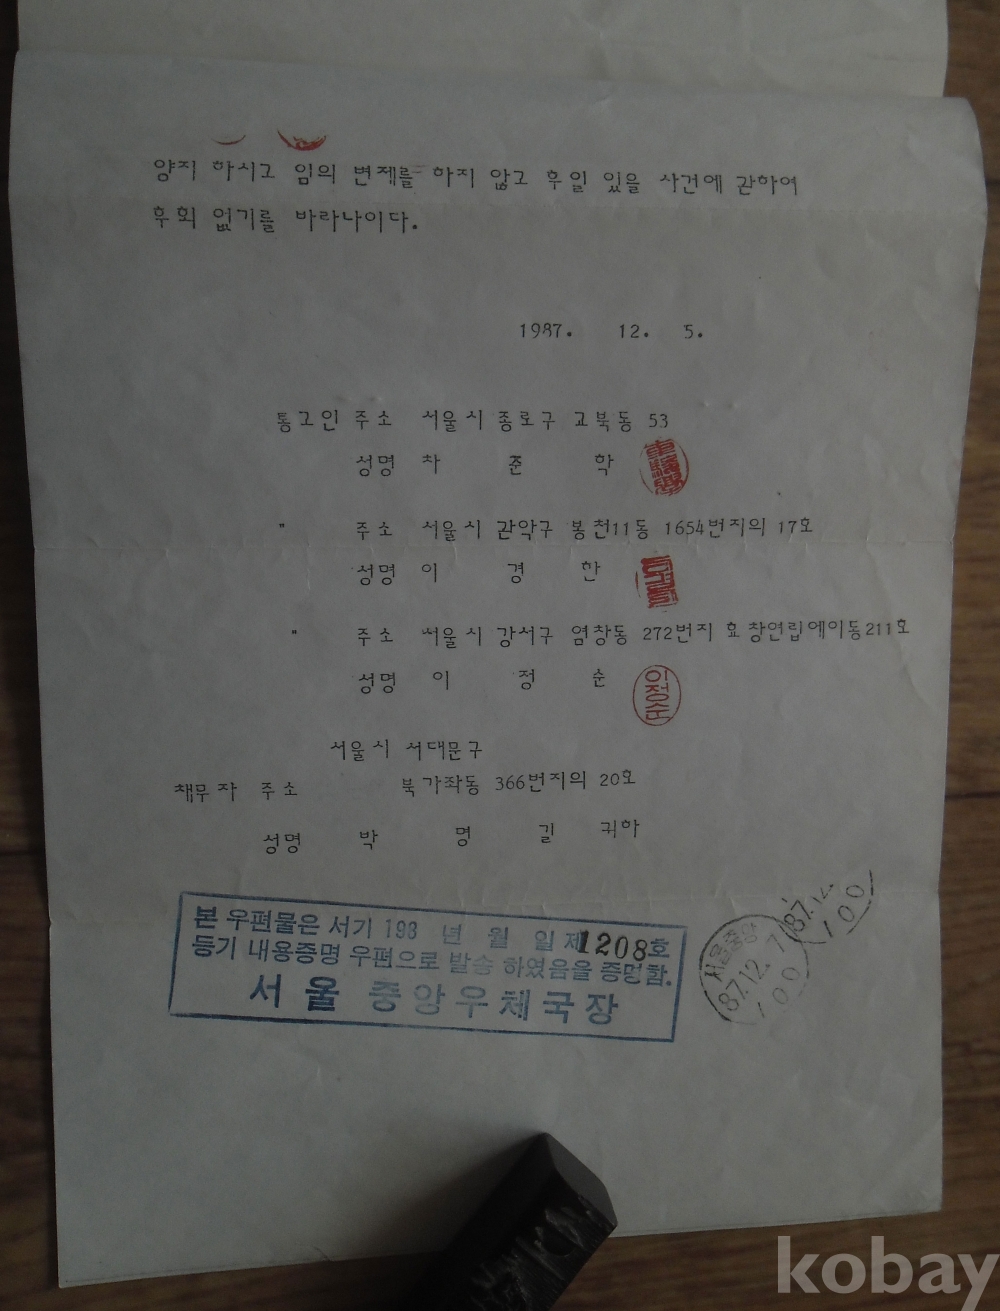 양지 하시고 임의 변제를 하지 않고 후일 있을 사건에 관하여
후회 없기를 바라나이다.
1987. 12. 5.
통고인 주소 서울시 종로구 교북동 53
성명 차 준 학
" 주소 서울시 관악구 봉천11동 1654번지의 17호
성명 이 경 한
" 주소 서울시 강서구 염창동 272번지 효창연립에이동211호
성명 이 정 순
이정순
서울시 서대문구
채무자 주소 북가좌동 366번지의 20호
성명 박 명 길 귀하
본 우편물은 서기 198 년 월 일 제1208호
등기 내용증명 우편으로 발송 하였음을 증명함.
서울 중앙우체국장
서울중앙
87.12.7
100
87.12.
100
kobay